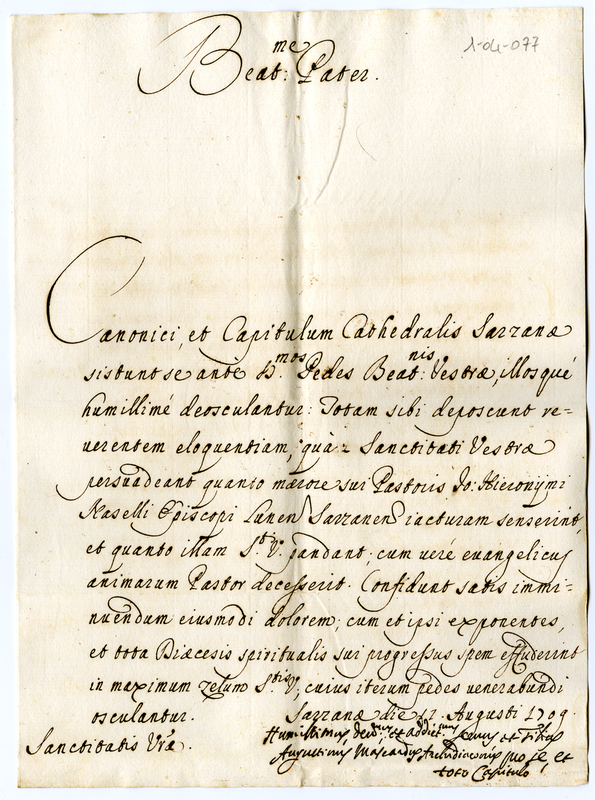 1-04-077
Beat:me Pater.
Canonici, et Capitulum Cathedralis Sarzanæ
sistunt se ante S.mos Pedes Beat:nis Vestræ, illosqué
humillimé deosculantur: Totam sibi deposcunt re=
uerentem eloquentiam, quà Sanctitati Vestræ
persuadeant quanto mærore sui Pastoris Jo: Hieronymi
Naselli Episcopi Lunen Sarzanen iacturam senserint,
et quanto illam S.ti V. pandant; cum veré evangelicus
animarum Pastor decesserit. Confidunt satis immi=
nuendum eiusmodi dolorem; cum et ipsi exponentes,
et tota Diæcesis spiritualis sui progressus spem effuderint
in maximum zelum S.tis V., cuius iterum pedes venerabundi
osculantur. Sarzanæ die 17. Augusti 1709.
Sanctitatis Vræ
Humillimus et addict. seruus et filius
Augustinus Mascardus Archidiaconus pro se, et
toto Capitulo